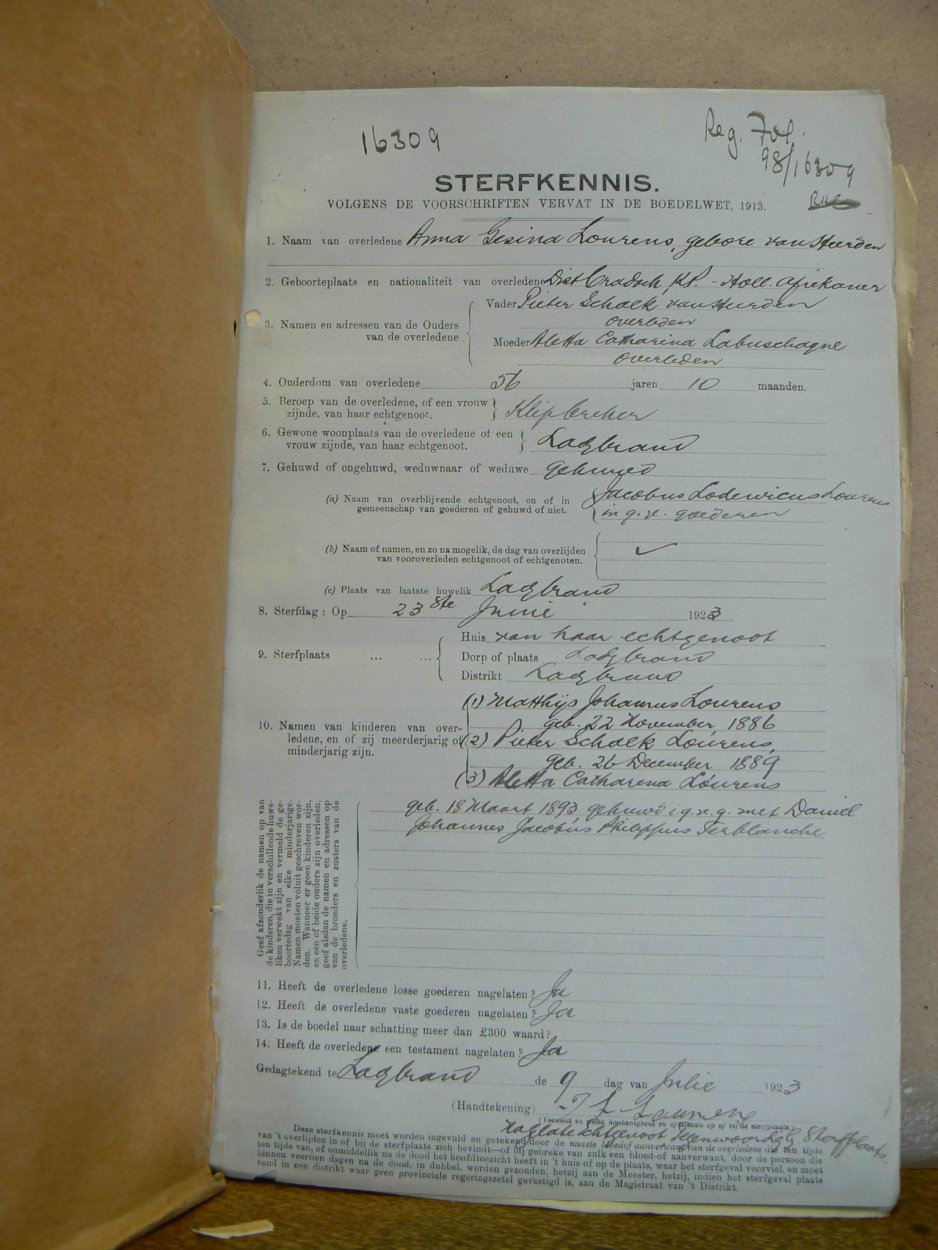 16309
Reg. Fol.
98/16309
STERFKENNIS.
VOLGENS DE VOORSCHRIFTEN VERVAT IN DE BOEDELWET, 1913.
1. Naam van overledene Anna Gesina Lourens, gebore van Heerden
2. Geboorteplaats en nationaliteit van overledene Dist Cradock KP. - Holl. Afrikaner
3. Namen en adressen van de Ouders van de overledene
Vader Pieter Schalk van Heerden
overleden
Moeder Aletta Catharina Labuschagne
overleden
4. Ouderdom van overledene 56 jaren 10 maanden.
5. Beroep van de overledene, of een vrouw
zijnde, van haar echtgenoot. Klipbreker
6. Gewone woonplaats van de overledene of een
vrouw zijnde, van haar echtgenoot. Ladybrand
7. Gehuwd of ongehuwd, weduwnaar of weduwe gehuwd
(a) Naam van overblijvende echtgenoot, en of in Jacobus Lodewicus Lourens
gemeenschap van goederen of gehuwd of niet. in g. v. goederen
(b) Naam of namen, en zo na mogelik, de dag van overlijden
van vooroverleden echtgenoot of echtgenoten. ✓
(c) Plaats van laatste huwelik Ladybrand
8. Sterfdag: Op 23ste Junie 1923
9. Sterfplaats ... ...
Huis van haar echtgenoot
Dorp of plaats Ladybrand
Distrikt Ladybrand
10. Namen van kinderen van over-
ledene, en of zij meerderjarig of
minderjarig zijn.
(1) Matthijs Johannes Lourens
geb. 22 November 1886
(2) Pieter Schalk Lourens,
geb. 26 December 1889
(3) Aletta Catharena Lourens
geb. 18 Maart 1893 gehuwd i.g.v.g. met Daniel
Johannes Jacobus Philippus Terblanche
Geef afzonderlik de namen op van
de kinderen, die in verschillende huwe-
liken verwekt zijn en vermeld de ge-
boortedag van elke minderjarige.
Namen moeten voluit geschreven wor-
den. Wanneer er geen kinderen zijn,
en een of beide ouders zijn overleden,
geef alsdan de namen en adressen op
van de broeders en zusters van de
overledene.
11. Heeft de overledene losse goederen nagelaten? Ja
12. Heeft de overledene vaste goederen nagelaten? Ja
13. Is de boedel naar schatting meer dan £300 waard?
14. Heeft de overledene een testament nagelaten? Ja
Gedagtekend te Ladybrand de 9 dag van Julie 1923
(Handtekening) J L Lourens
nagelate echtgenoot teenwoordig by Sterfplaats.
Deze sterfkennis moet worden ingevuld en getekend door de naaste bloed-of aanverwant van de overledene die ten tijde
van 't overlijden in of bij de sterfplaats zich bevindt—of bij gebreke van zulk een bloed-of aanverwant, door de persoon die
ten tijde van, of onmiddellik na de dood het hoofdtoezicht heeft in 't huis of op de plaats, waar het sterfgeval voorviel, en moet
binnen veertien dagen na de dood, in dubbel, worden gezonden, hetzij aan de Meester, hetzij, indien het sterfgeval plaats
vond in een distrikt waar geen provinciale regeringszetel gevestigd is, aan de Magistraat van 't Distrikt.